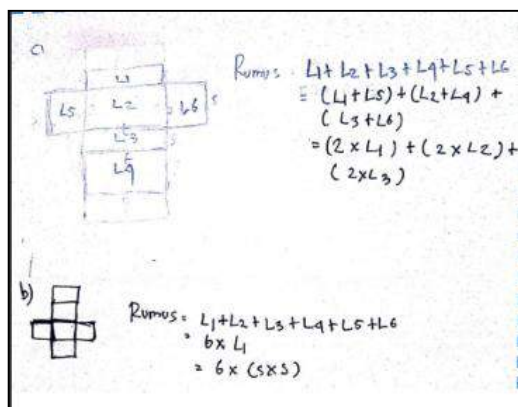 a
L1
L5 L2 L6 s
L3 s
L4
Rumus : L1 + L2 + L3 + L4 + L5 + L6
= (L1 + L5) + (L2 + L4) +
(L3 + L6)
= (2 x L1) + (2 x L2) +
(2 x L3)
b)
Rumus = L1 + L2 + L3 + L4 + L5 + L6
= 6 x L1
= 6 x (s x s)